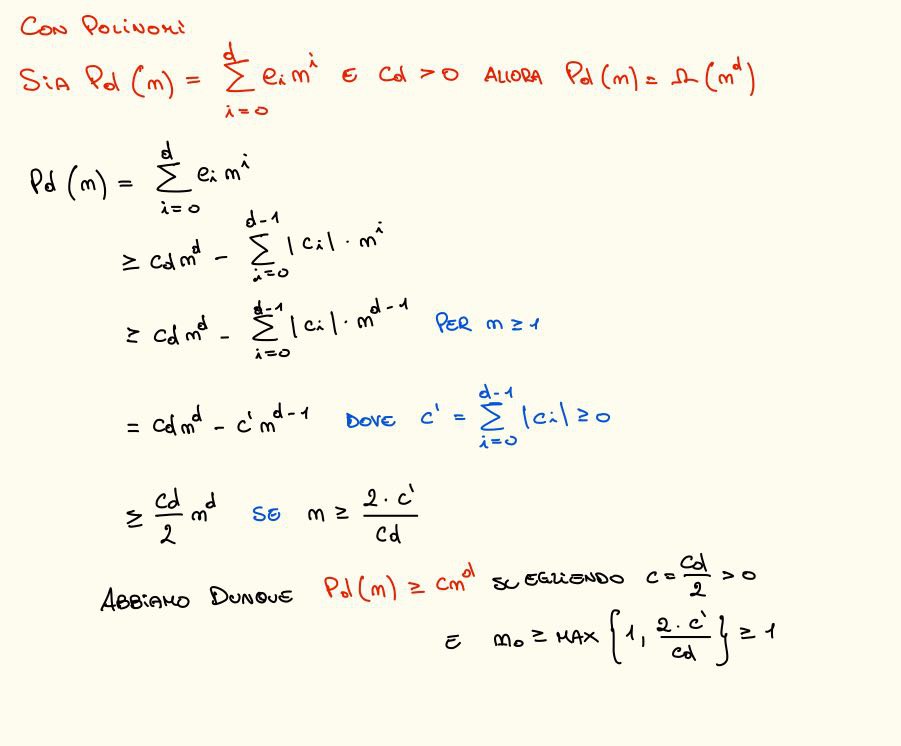 CON POLINOMI
SIA Pd(m) = ∑_{i=0}^{d} e_i m^i E Cd > 0 ALLORA Pd(m) = Ω(m^d)
Pd(m) = ∑_{i=0}^{d} e_i m^i
≥ cd m^d - ∑_{i=0}^{d-1} |c_i| · m^i
≥ cd m^d - ∑_{i=0}^{d-1} |c_i| · m^{d-1} PER m ≥ 1
= cd m^d - c' m^{d-1} DOVE c' = ∑_{i=0}^{d-1} |c_i| ≥ 0
≥ \frac{cd}{2} m^d SE m ≥ \frac{2 · c'}{cd}
ABBIAMO DUNQUE Pd(m) ≥ cm^d SCEGLIENDO c = \frac{cd}{2} > 0
E m_0 ≥ MAX {1, \frac{2 · c'}{cd}} ≥ 1